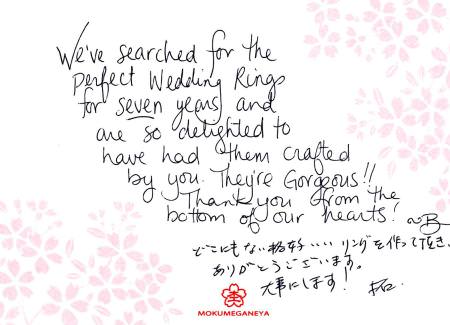 We've searched for the
perfect Wedding Rings
for seven years and
are so delighted to
have had them crafted
by you. They're Gorgeous!!
Thank you from the
bottom of our hearts! ~B
どこにもない格好いいリングを作って頂き、
ありがとうございます。
大事にします!
MOKUMEGANEYA